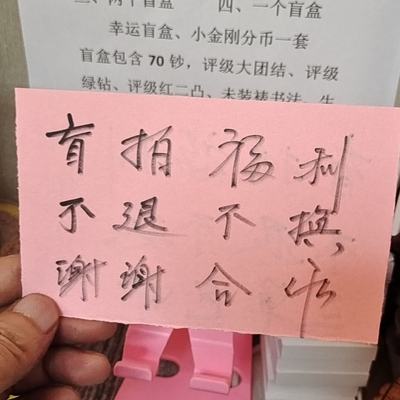 三、两个盲盒 四、一个盲盒
幸运盲盒、小金刚分币一套
盲盒包含 70 钞，评级大团结、评级
绿钻、评级红二凸、未装裱书法、生
盲拍福利
不退不换
谢谢合作